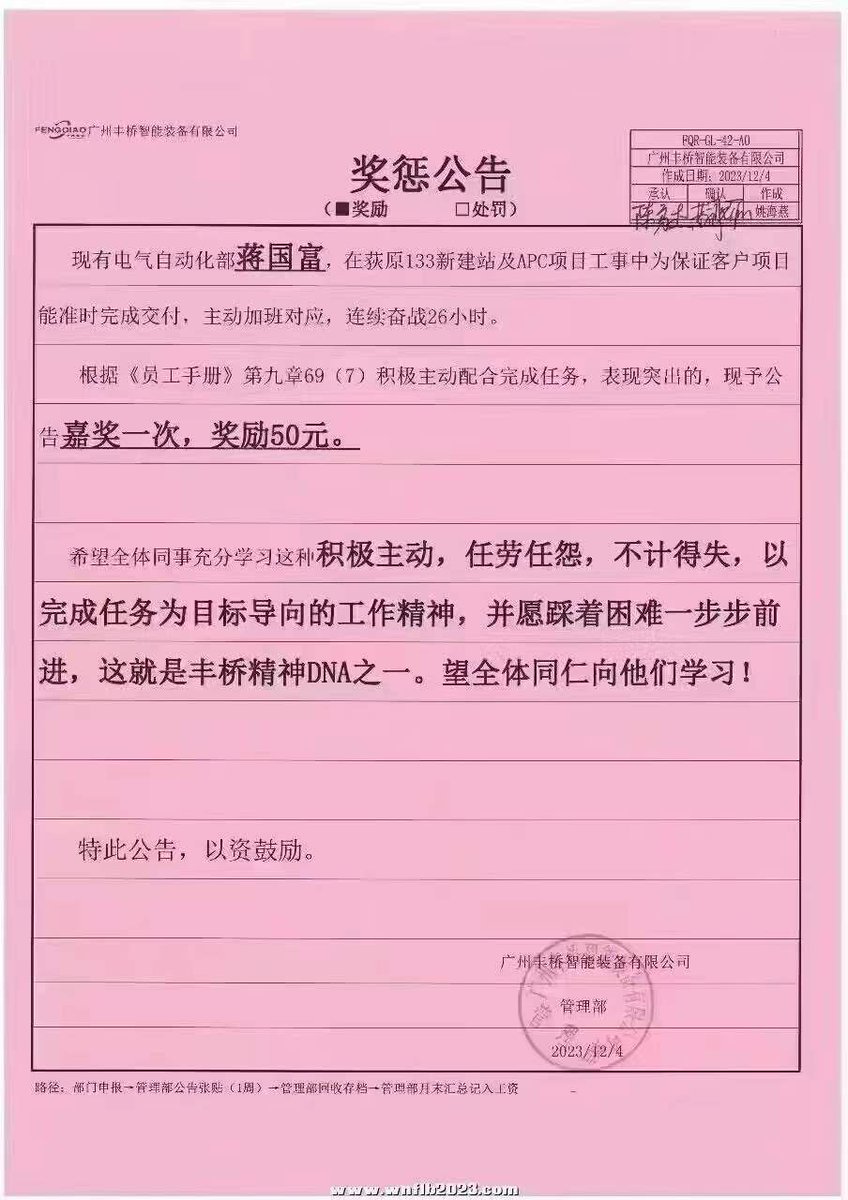 FENGQIAO 广州丰桥智能装备有限公司
FQR-GL-42-A0
广州丰桥智能装备有限公司
作成日期：2023/12/4
承认 确认 作成
姚海燕
奖惩公告
（■奖励 □处罚）
现有电气自动化部蒋国富，在荻原133新建站及APC项目工事中为保证客户项目
能准时完成交付，主动加班对应，连续奋战26小时。
根据《员工手册》第九章69（7）积极主动配合完成任务，表现突出的，现予公
告嘉奖一次，奖励50元。
希望全体同事充分学习这种积极主动，任劳任怨，不计得失，以
完成任务为目标导向的工作精神，并愿踩着困难一步步前
进，这就是丰桥精神DNA之一。望全体同仁向他们学习！
特此公告，以资鼓励。
广州丰桥智能装备有限公司
管理部
2023/12/4
路径：部门申报→管理部公告张贴（1周）→管理部回收存档→管理部月末汇总记入工资
www.wnflb2023.com